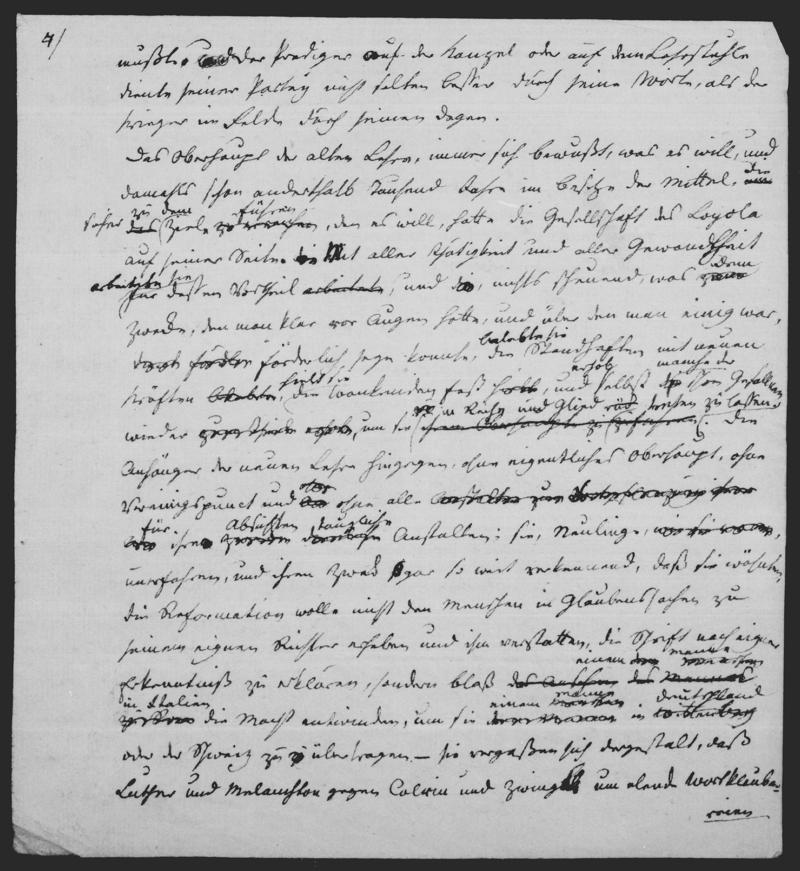 4/
mußte. Und der Prediger auf der Kanzel oder auf dem Lehrstuhle
diente seiner Partey nicht selten besser durch seine Worte, als der
Krieger im Felde durch seinen Degen.
Das Oberhaupt der alten Lehre, immer sich bewußt, was es will, und
damahls schon anderthalb tausend Jahre im Besitze der Mittel, die
sicher zu dem Ziele zu führen, den es will, hatte die Gesellschaft des Loyola
auf seiner Seite. Mit aller Thätigkeit und aller Gewandtheit
arbeitete sie für dessen Vortheil arbeitete, und, nichts scheuend, was dem
Zwecke, den man klar vor Augen hatte, und über den man einig war,
förderlich seyn konnte, belebte sie die Standhaften mit neuen
Kräften, hielt sie die Wankenden fest, und selbst manche der schon Gefallenen
wieder, um sie in Reih und Glied treten zu lassen. Die
Anhänger der neuen Lehre hingegen, ohne eigentliches Oberhaupt, ohne
Vereinigspunct und ohne alle
für ihre Absichten taugliche Anstalten; sie, Neulinge,
unerfahren, und ihren Zwek sogar so weit verkennend, daß sie wähnten,
die Reformation wolle nicht den Menschen in Glaubenssachen zu
seinem eignen Richter erheben und ihm verstatten, die Schrift nach eigner
Erkenntniß zu erklären, sondern bloß einem Manne
in Italien die Macht entwinden, um sie einem Manne in Deutschland
oder der Schweiz zu übertragen – sie vergaßen sich dergestalt, daß
Luther und Melanchton gegen Calvin und Zwingli um elende Wortklaube-
reien